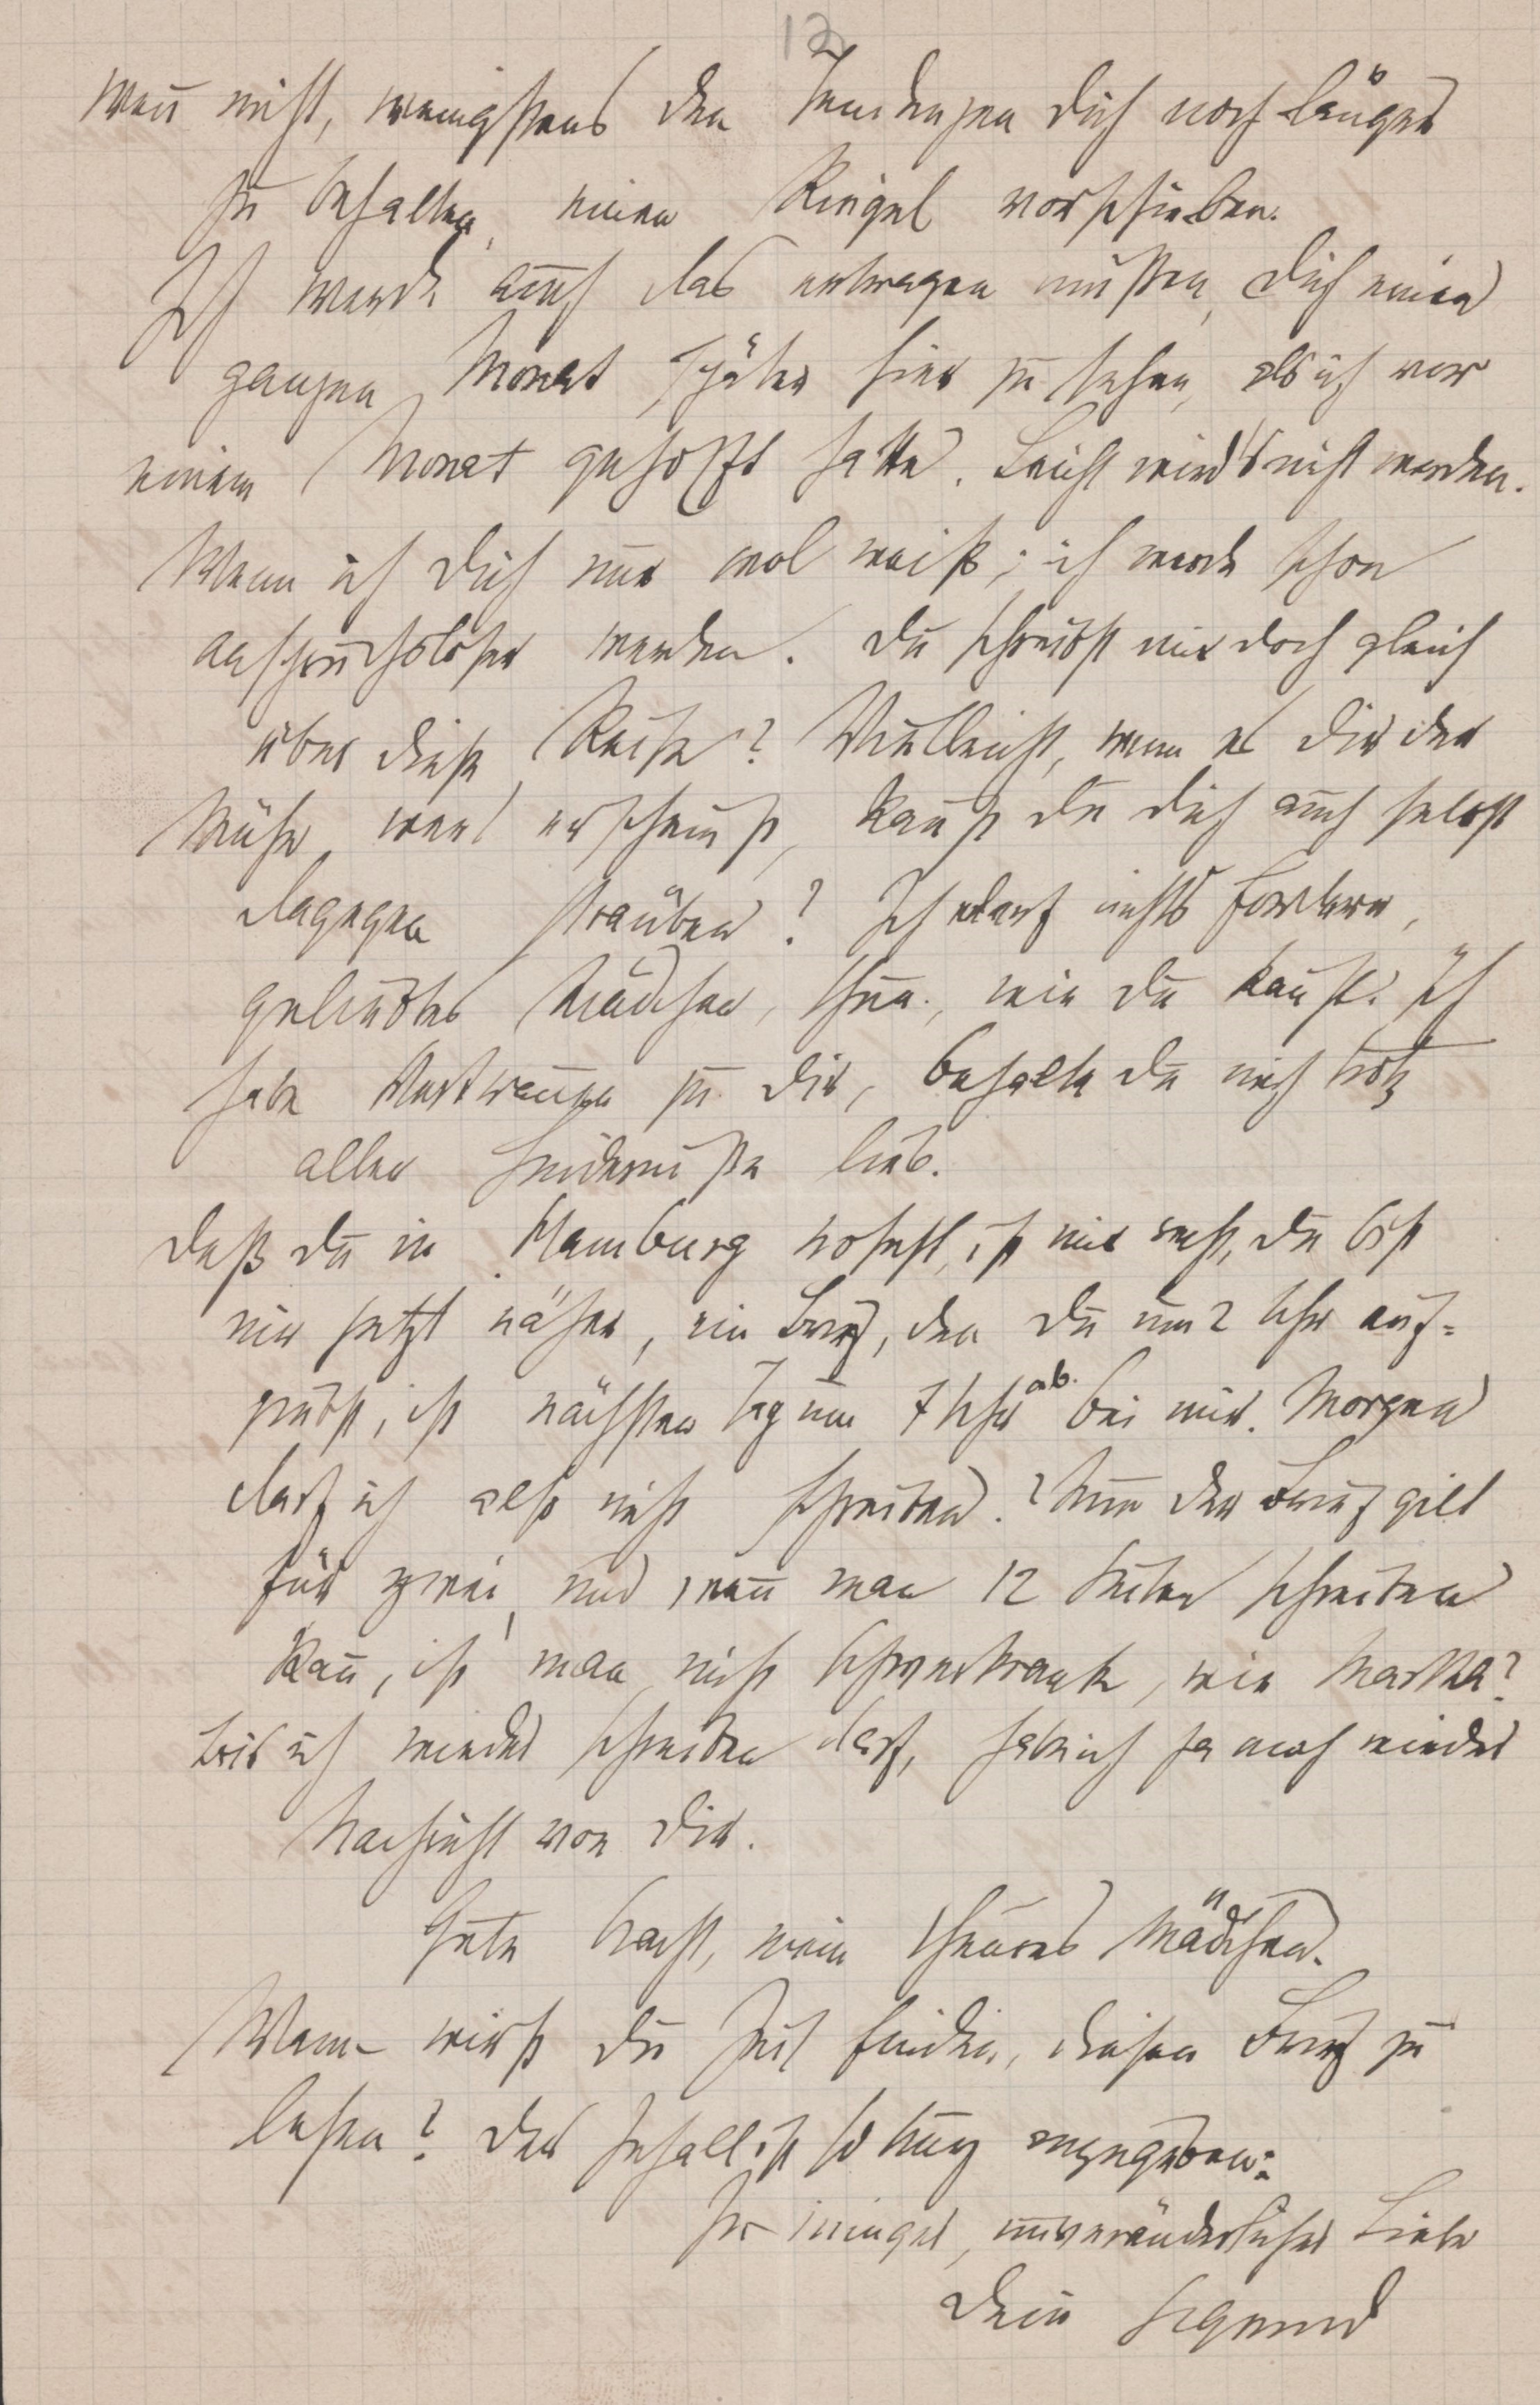 12
weñ nicht, wenigstens den Tendenzen Dich noch länger
zu behalten, einen Riegel vorschieben.
Ich werde auch das ertragen müssen, Dich einen
ganzen Monat später hier zu sehen, als ich vor
einem Monat gehofft hatte. Leicht wird's nicht werden.
Wenn ich Dich nur wol weiß; ich werde schon
anspruchsloser werden. Du schreibst mir doch gleich
über diese Reise? Vielleicht, wenn es Dir der
Mühe wert erscheint, kañst du dich auch selbst
dagegen sträuben? Ich darf nichts fordern,
geliebtes Mädchen, thue, wie Du kañst. Ich
habe Vertrauen zu Dir, behalte Du mich trotz
aller Hindernisse lieb.
Daß Du in Hamburg wohnst, ist mir recht, Du bist
mir jetzt näher, ein Brief, den Du um 2 Uhr auf-
giebst, ist nächsten Tag um 7 Uhr ab. bei mir. Morgen
darf ich also nicht schreiben? Nun der Brief gilt
für zwei, und weñ man 12 Seiten schreiben
kañ, ist man nicht schwerkrank, wie Martha?
Bis ich wieder schreiben darf, habe ich ja auch wieder
Nachricht von Dir.
Gute Nacht, mein theures Mädchen.
Wann wirst Du Zeit finden, diesen Brief zu
lesen? Der Inhalt ist so kurz
In inniger, unveränderlicher Liebe
Dein Sigmund